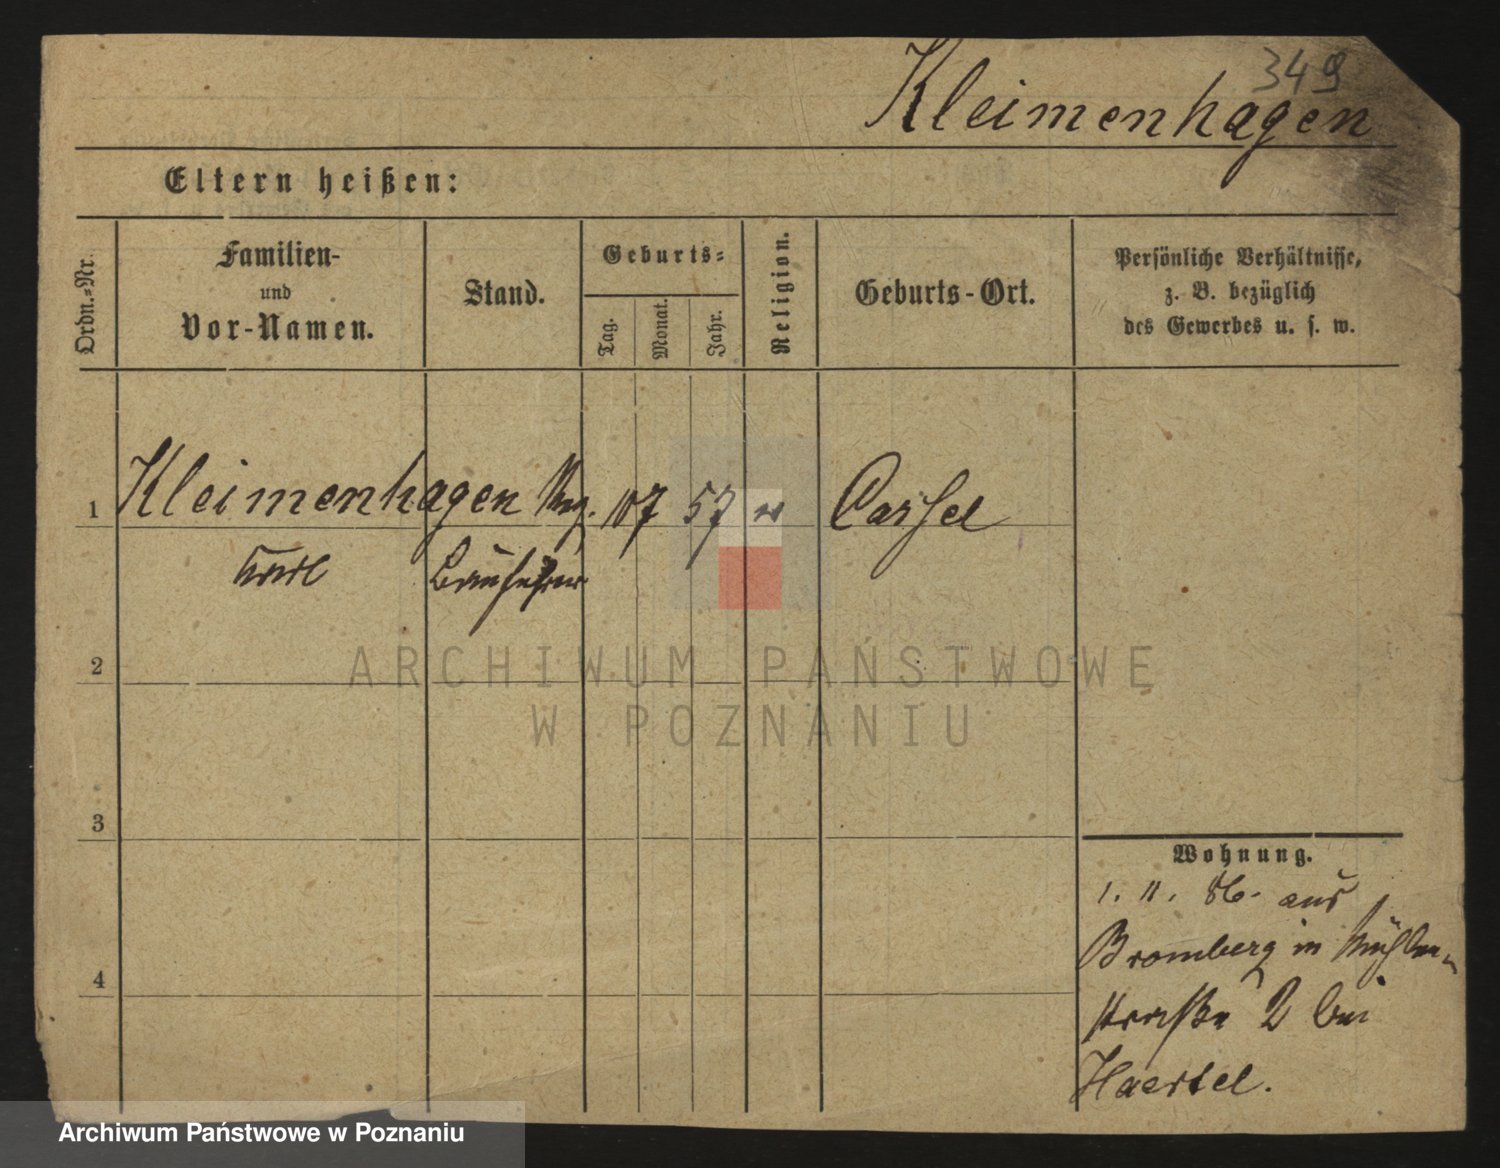 349
Kleimenhagen
Eltern heißen:
Ordn.-Nr.
Familien-
und
Vor-Namen.
Stand.
Geburts-
Tag.
Monat.
Jahr.
Religion.
Geburts-Ort.
Persönliche Verhältnisse,
z. B. bezüglich
des Gewerbes u. s. w.
1 Kleimenhagen Reg. 57 Cassel
Karl Bauführer
ARCHIWUM PAŃSTWOWE
W POZNANIU
2
3
4
Wohnung.
1. 11. 86. aus
Bromberg in Mühlen-
straße 2 bei
Haertel.
Archiwum Państwowe w Poznaniu